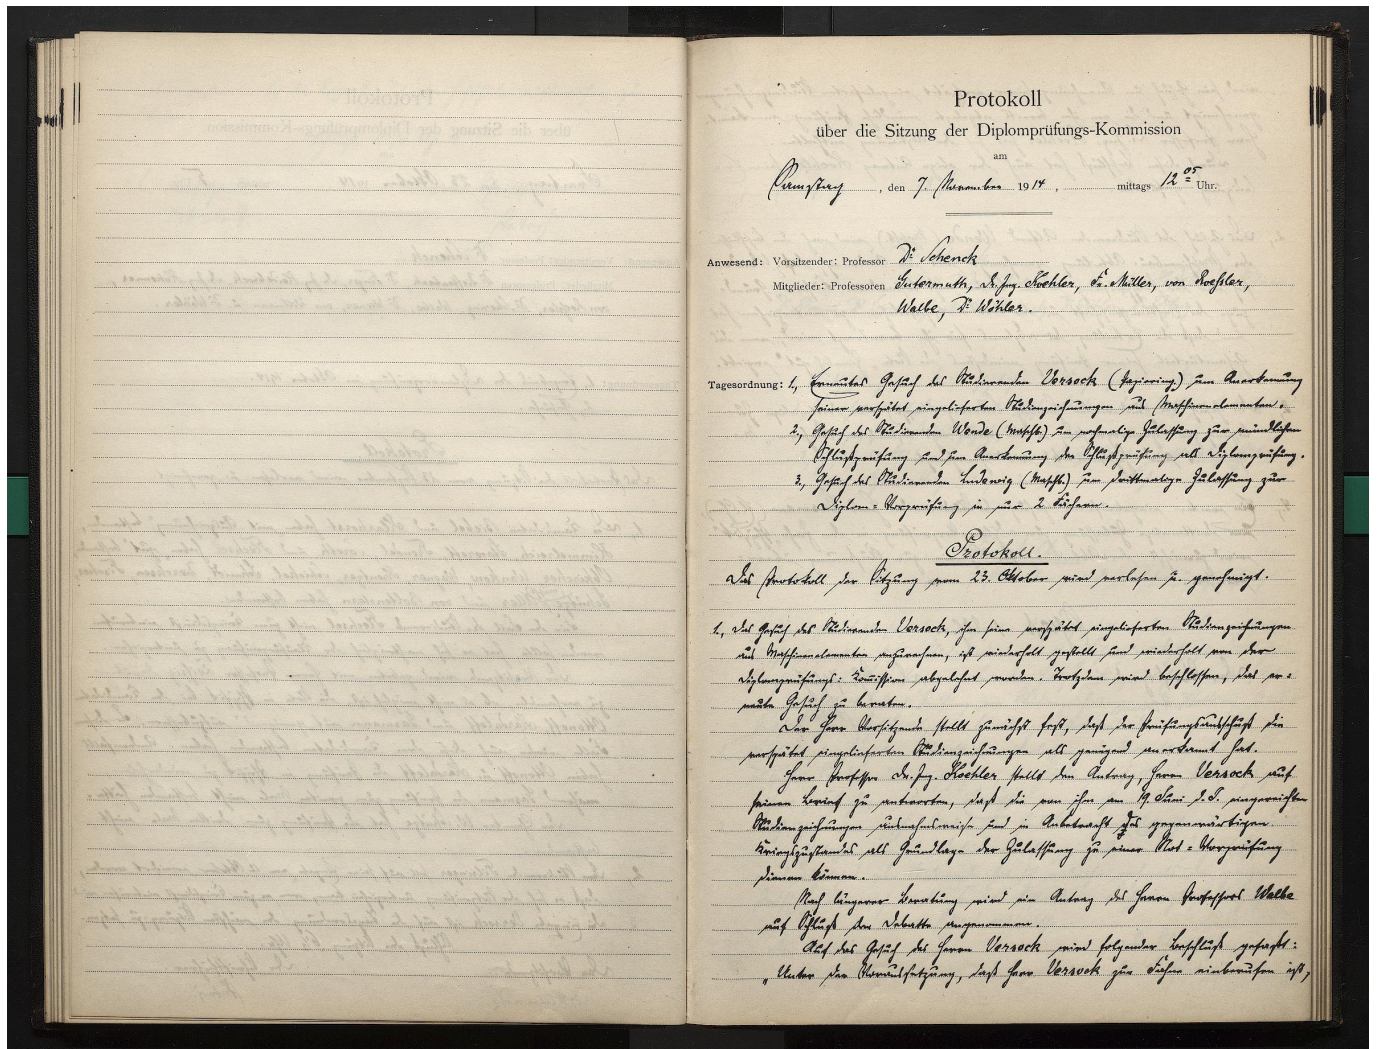 Protokoll
über die Sitzung der Diplomprüfungs-Kommission
am
Samstag, den 7. November 1914, mittags 12 05 Uhr.
Anwesend: Vorsitzender: Professor Dr. Schenck
Mitglieder: Professoren Gutermuth, Dr. Ing. Koehler, Fr. Müller, von Roeßler,
Walbe, Dr. Wöhler.
Tagesordnung: 1., Erneutes Gesuch des Studierenden Versock (Papiering.) um Anerkennung
seiner verspätet eingelieferten Studienzeichnungen aus Maschinenelementen.
2., Gesuch des Studierenden Wende (Maschb.) um nochmalige Zulassung zur mündlichen
Schlußprüfung und um Anerkennung der Schlußprüfung als Diplomprüfung.
3., Gesuch des Studierenden Ludewig (Maschb.) um drittmalige Zulassung zur
Diplom-Vorprüfung in nur 2 Fächern.
Protokoll.
Das Protokoll der Sitzung vom 23. Oktober wird verlesen u. genehmigt.
1., Das Gesuch des Studierenden Versock, ihm seine verspätet eingelieferten Studienzeichnungen
aus Maschinenelementen anzurechnen, ist wiederholt gestellt und wiederholt von der
Diplomprüfungs-Kommission abgelehnt worden. Trotzdem wird beschlossen, das er-
neute Gesuch zu beraten.
Der Herr Vorsitzende stellt zunächst fest, daß der Prüfungsausschuß die
verspätet eingelieferten Studienzeichnungen als genügend anerkannt hat.
Herr Professor Dr. Ing. Koehler stellt den Antrag, Herrn Versock auf
seinen Brief zu antworten, daß die von ihm am 19. Juni d. J. eingereichten
Studienzeichnungen ausnahmsweise und in Anbetracht des gegenwärtigen
Kriegszustandes als Grundlage der Zulassung zu einer Not-Vorprüfung
dienen können.
Nach längerer Beratung wird ein Antrag des Herrn Professors Walbe
auf Schluß der Debatte angenommen.
Auf das Gesuch des Herrn Versock wird folgender Beschluß gefaßt:
„Unter der Voraussetzung, daß Herr Versock zur Fahne einberufen ist,